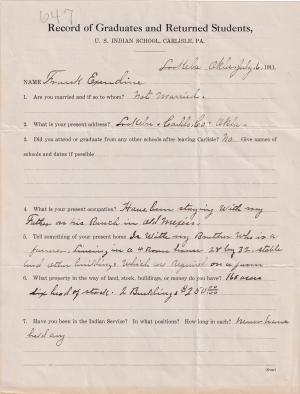 647
Record of Graduates and Returned Students,
U. S. INDIAN SCHOOL, CARLISLE, PA.
Lookeba Okla July 6, 1911.
NAME Frank Exendine
1. Are you married and if so to whom? Not Married.
2. What is your present address? Lookeba. Caddo Co Okla.
3. Did you attend or graduate from any other schools after leaving Carlisle? No Give names
of schools and dates if possible
4. What is your present occupation? Have been staying With my
Father on his Ranch in Old Mexico.
5. Tell something of your present home Is With my Brother Who is a
farmer. Living in a 4 Room house 28 by 32. stable
and other buildings Which are Required on a farm
6. What property in the way of land, stock, buildings, or money do you have? 160 acres
six head of stock. 2 Buildings $250.00
7. Have you been in the Indian Service? In what positions? How long in each? Never have
held any
(Over)